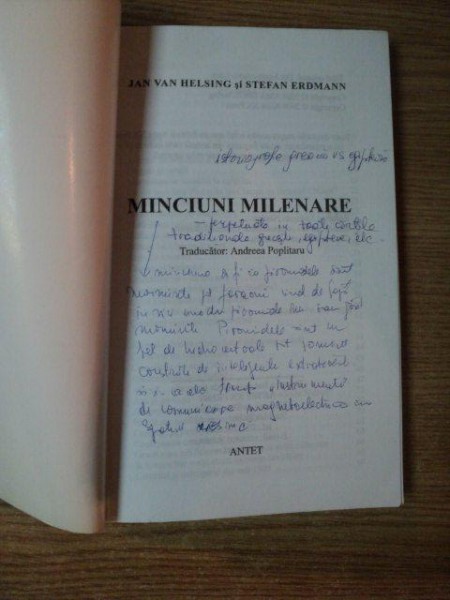 JAN VAN HELSING și STEFAN ERDMANN
istoriografia greacă vs egipteană
MINCIUNI MILENARE
– perpetuate în toate cărțile
tradiționale grecești, egiptene, etc.
Traducător: Andreea Poplitaru
minciuna ar fi ca piramidele sunt
morminte pt faraoni când de fapt
în nici una din piramide nu s-au găsit
mumiile. Piramidele sunt un
fel de
construite de inteligențe extraterestre
și
de comunicare magnetoelectrica cu
ANTET